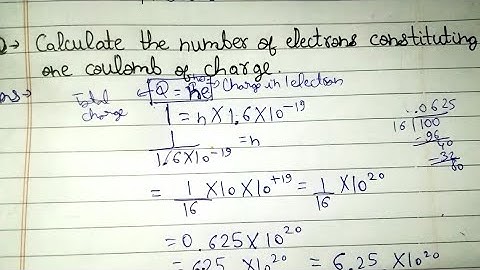 Q→ Calculate the number of electrons constituting
one coulomb of charge
Ans→ Total charge ← Q = ne → Charge in 1 electron
1 = n × 1.6×10⁻¹⁹
1/1.6×10⁻¹⁹ = n
= 1/16 ×10×10⁺¹⁹ = 1/16 ×10²⁰
= 0.625×10²⁰
= 6.25 ×10²⁰ = 6.25 ×10²⁰
..0625
16 100
-96
40
-32
80